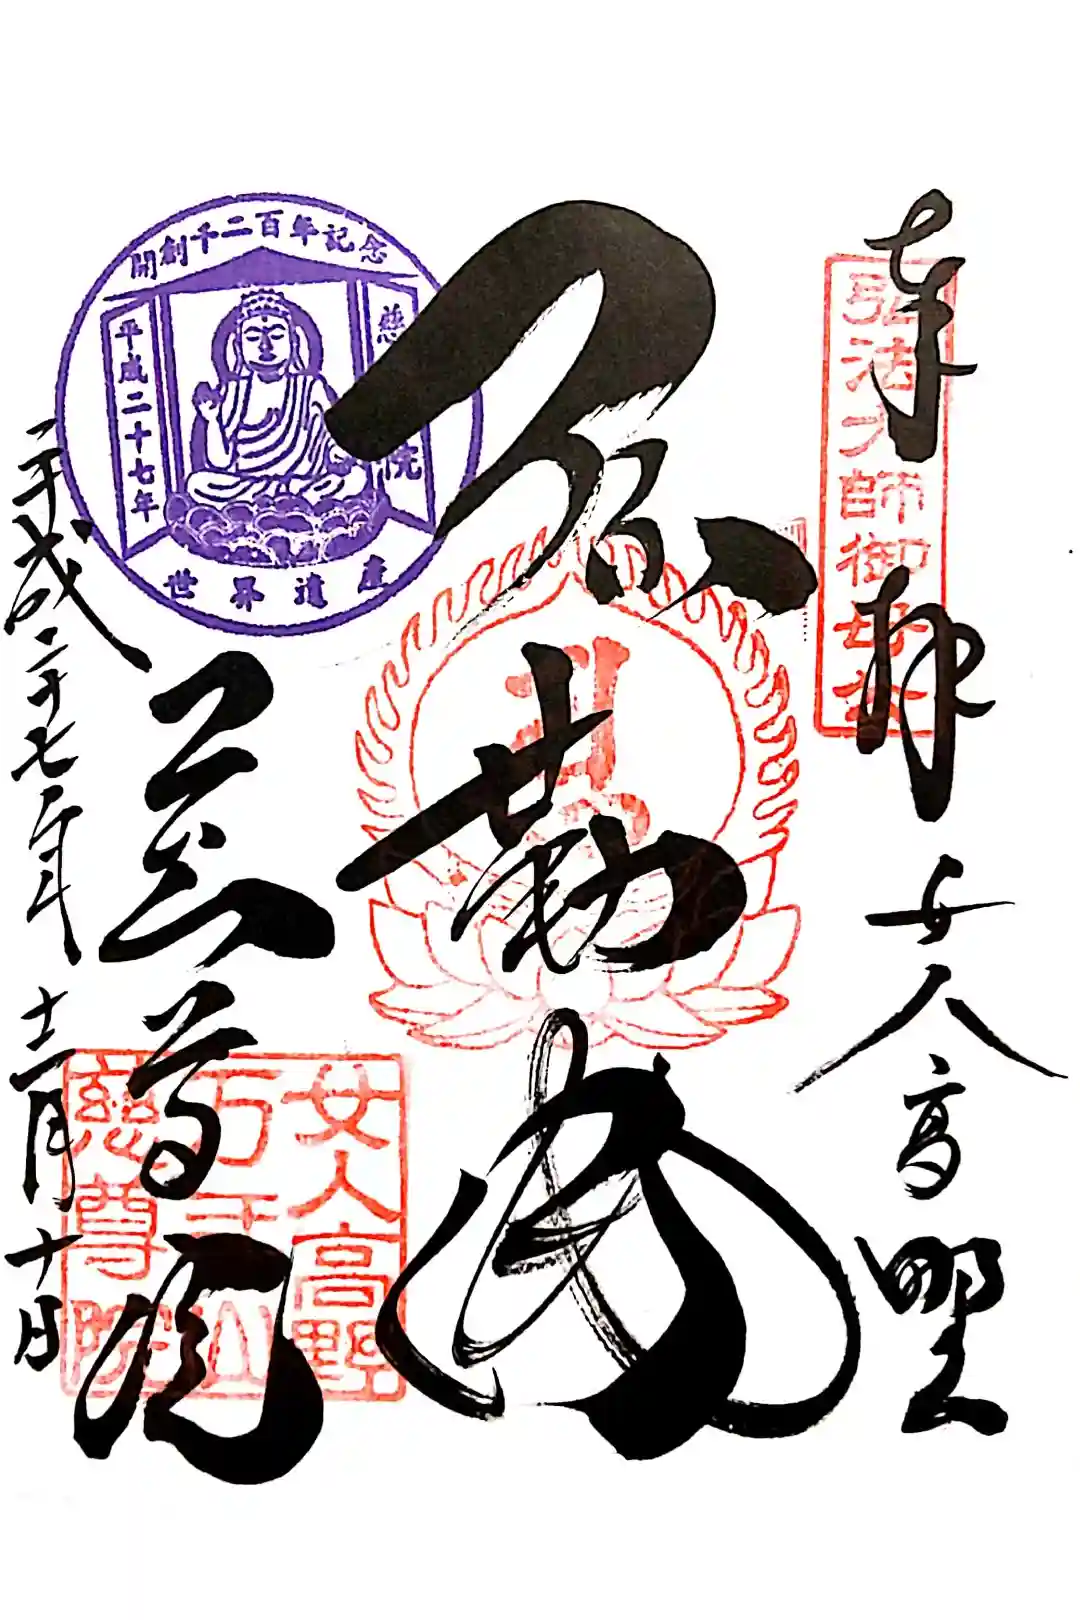 奉拝 女人高野
弘法大師御母公
弥勒
慈尊院
平成二十七年 十二月 十日
開創千二百年記念
平成二十七年
慈
院
世界遺産
女人高野
万年山
慈尊院